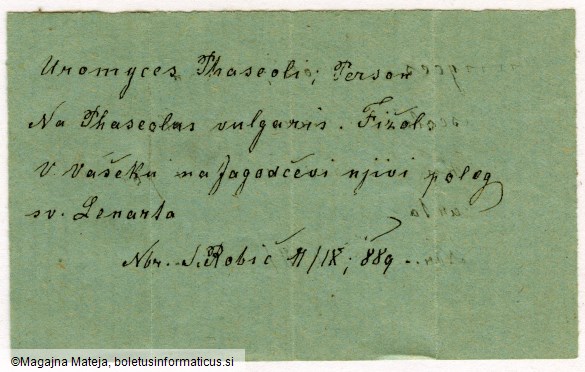 Uromyces Phaseoli; Person
Na Phaseolus vulgaris. Fižolo
V Vašeku na Jagodčevi njivi poleg
sv. Lenarta
Nbr. S. Robič 11/IX; 889.
©Magajna Mateja, boletusinformaticus.si